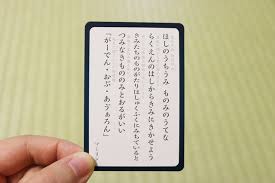 ほしのうちうみ ものみのうてな
らくえんのはしからきみにきかせよう
きみたちのものがたりはしゅくふくにみちていると
つみなきもののみとおるがいい
「がーでん・おぶ・あゔぁろん」